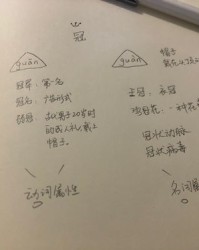 冠
guàn
冠军：第一名
冠名：广告形式
弱冠：古代男子20岁时
的成人礼，戴上
帽子。
动词属性
guān
帽子
王冠，衣冠
鸡冠花：一种花
冠状动脉
冠状病毒
名词属